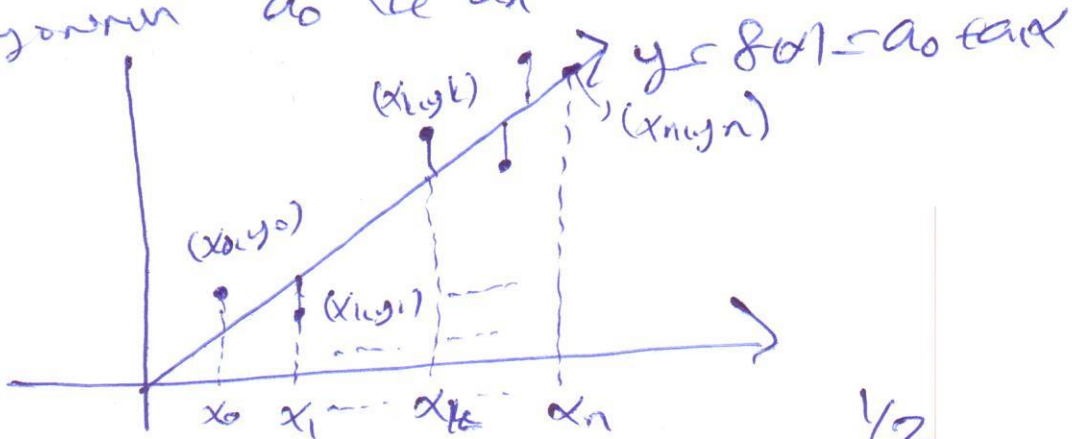 a₀
y = f(x) = a₀ + a₁x
(xₖ, yₖ)
(xₙ, yₙ)
(x₀, y₀)
(x₁, y₁)
x₀ x₁ ---- xₖ --- xₙ
1/2